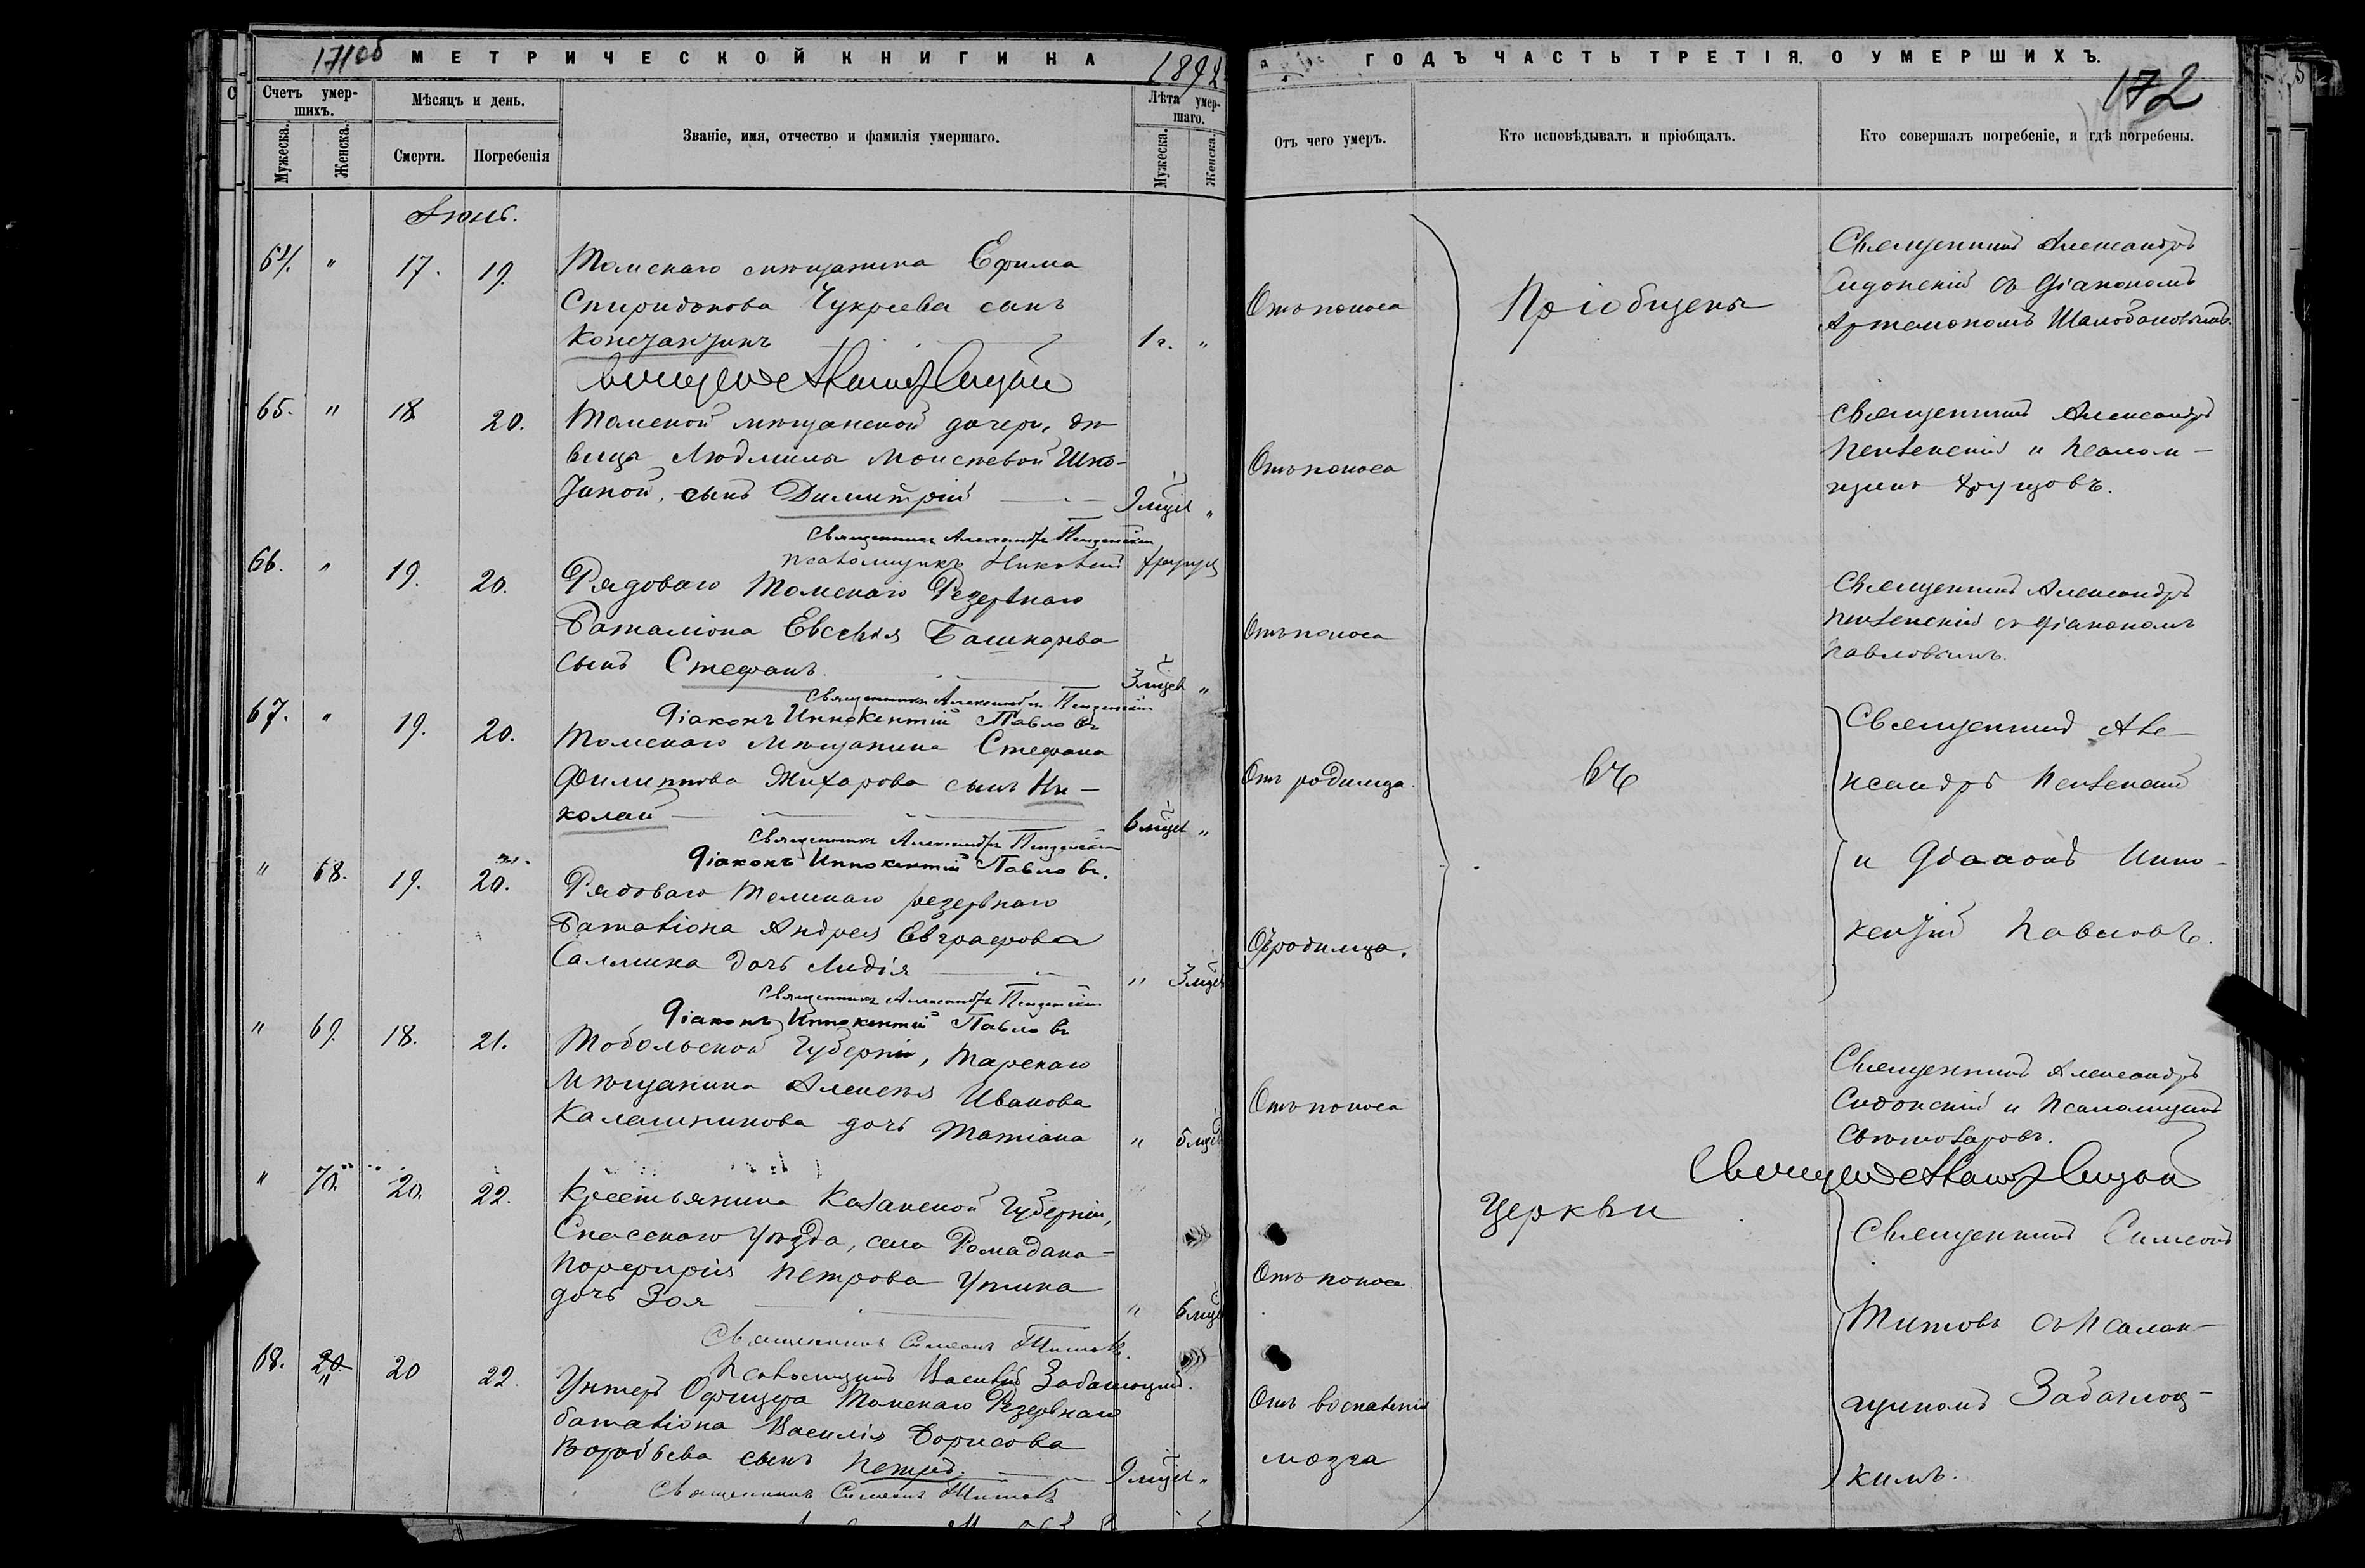 171об
МЕТРИЧЕСКОЙ КНИГИ НА 1892
Счетъ умер-
шихъ.
Мужеска.
Женска.
Мѣсяцъ и день.
Смерти.
Погребенія
Званіе, имя, отчество и фамилія умершаго.
Лѣта умер-
шаго.
Мужеска.
Женска.
Іюнь.
64. " 17. 19.
Томскаго мѣщанина Ефима
Спиридонова Чукреева сынъ
Константинъ 1 г. "
65. " 18 20.
Томской мѣщанской дочери, дѣ-
вицы Людмилы Моисеевой
сынъ Димитрій 9 мцев "
Священникъ Александръ Пензенскій
псаломщикъ Николай
66. " 19. 20.
Рядоваго Томскаго Резервнаго
Баталіона Евсевія Башкарева
сынъ Стефанъ 3 мцев "
Священникъ Александръ Пензенскій
Діаконъ Иннокентій Павловъ
67. " 19. 20.
Томскаго мѣщанина Стефана
Филиппова Жихарова сынъ Ни-
колай 6 мцев "
Священникъ Александръ Пензенскій
Діаконъ Иннокентій Павловъ.
" 68. 19. 20.
Рядоваго Томскаго резервнаго
Баталіона Андрея Евграфова
Салмина дочь Лидія " 3 мцев
Священникъ Александръ Пензенскій
Діаконъ Иннокентій Павловъ
" 69. 18. 21.
Тобольской Губерніи, Тарскаго
мѣщанина Алексѣя Иванова
Калашникова дочь Татіана " 5 мцев
" 70. 20. 22.
Крестьянина Казанской Губерніи,
Спасскаго уѣзда, села Ромадана-
Порфирія Петрова Утина
дочь Зоя " 6 мцев
Священникъ Симеонъ Титовъ.
Псаломщикъ Василій Заблоцкій.
68. " 20 22.
Унтеръ Офицера Томскаго Резервнаго
баталіона Василія Борисова
Воробьева сынъ Петръ. 9 мцев "
Священникъ Симеонъ Титовъ
ГОДЪ ЧАСТЬ ТРЕТІЯ, О УМЕРШИХЪ.
172
Отъ чего умеръ.
Кто исповѣдывалъ и пріобщалъ.
Кто совершалъ погребеніе, и гдѣ погребены.
Отъ поноса
Пріобщены
Священникъ Александръ
Сидонскій съ Діакономъ
Артемономъ
Отъ поноса
Священникъ Александръ
Пензенскій и Псалом-
щикъ
Отъ поноса
Священникъ Александръ
Пензенскій съ Діакономъ
Павловымъ.
Отъ родимца.
въ
Священникъ Але-
ксандръ Пензенскій
и Діаконъ Инно-
кентій Павловъ.
Отъ родимца.
Отъ поноса
Священникъ Александръ
Сидонскій и Псаломщикъ
Отъ поноса.
Церкви
Священникъ Симеонъ
Титовъ съ Псалом-
щикомъ Заблоц-
кимъ.
Отъ воспаленія
мозга